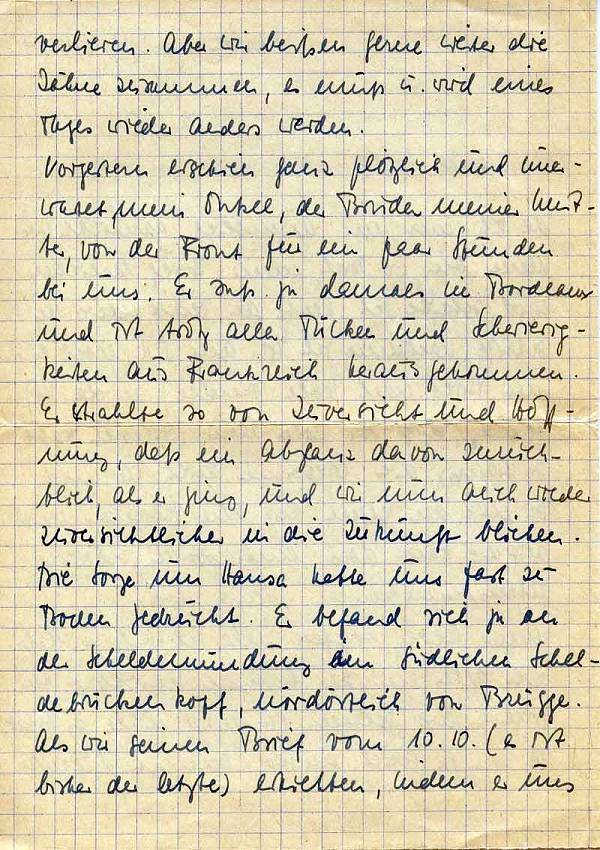 verlieren. Aber wir beißen gerne weiter die
Zähne zusammen, es muß u. wird eines
Tages wieder anders werden.
Vorgestern erschien ganz plötzlich und uner-
wartet, mein Onkel, der Bruder meiner Mut-
ter, von der Front für ein paar Stunden
bei uns. Er saß ja damals in Bordeaux
und ist trotz aller Tücken und Schwierig-
keiten aus Frankreich herausgekommen.
Er strahlte so von Zuversicht und Hoff-
nung, daß ein Abglanz davon zurück-
blieb, als er ging, und wir nun auch wieder
zuversichtlicher in die Zukunft blicken.
Die Sorge um Hansa hatte uns fast zu
Boden gedrückt. Er befand sich ja an
der Scheldemündung im südlichen Schel-
debrückenkopf, nordöstlich von Brügge.
Als wir seinen Brief vom 10.10. (es ist
bisher der letzte) erhielten, indem er uns